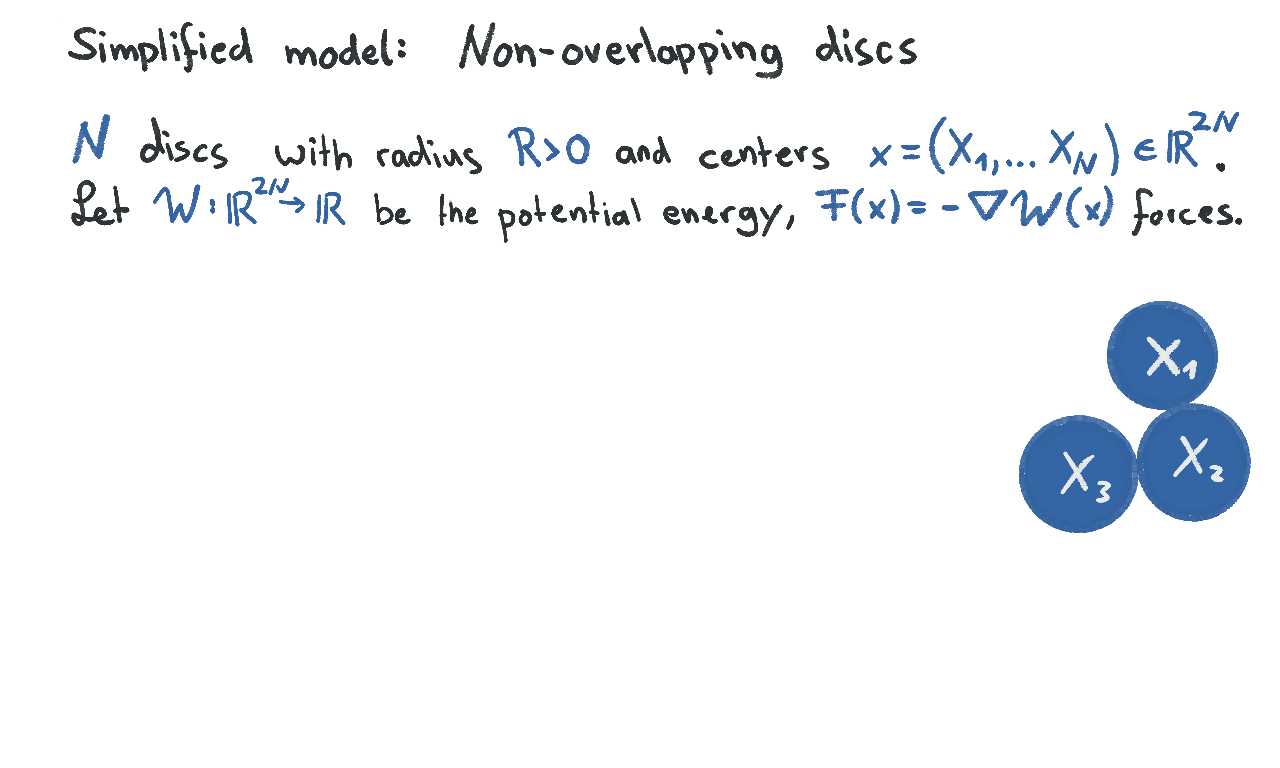 Simplified model: Non-overlapping discs
N discs with radius R>0 and centers x=(X₁,... X_N) ∈ ℝ²ᴺ.
Let W: ℝ²ᴺ→ ℝ be the potential energy, F(x)= -∇W(x) forces.
X₁
X₃ X₂